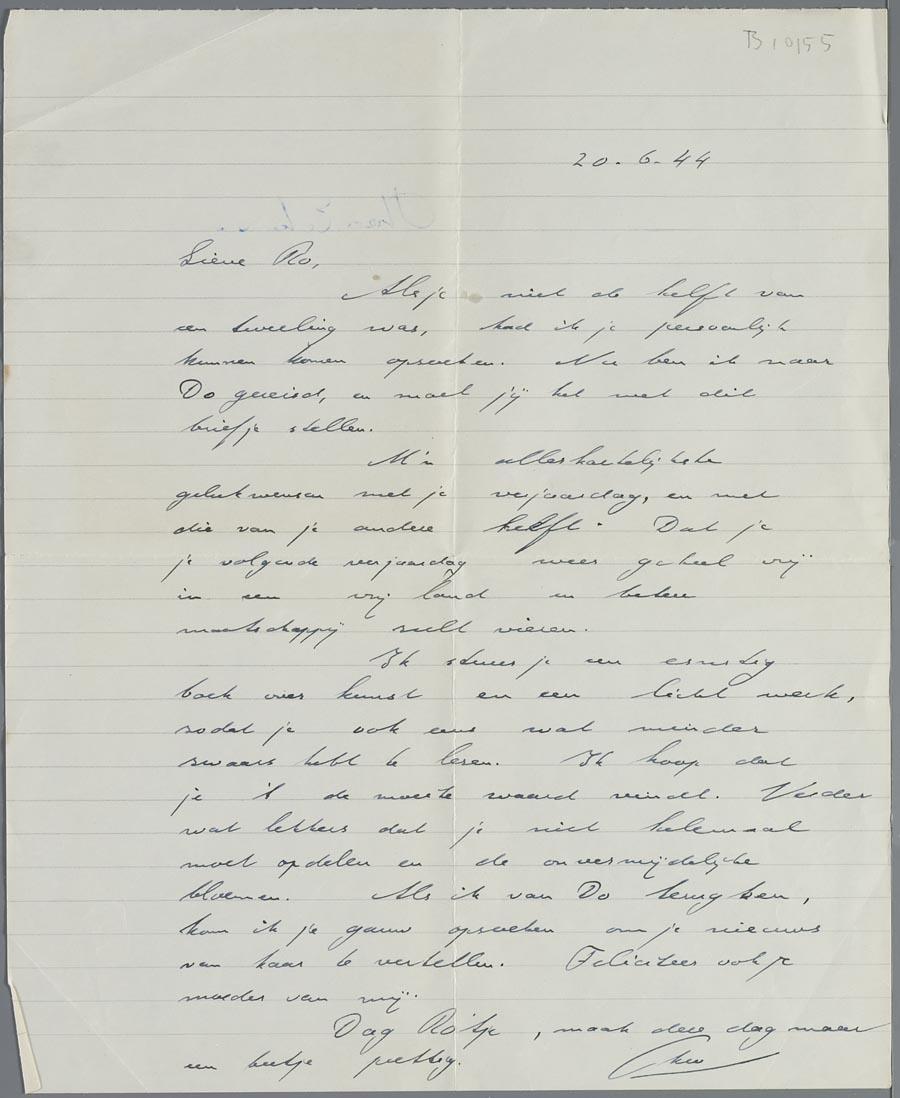 B 10155
20-6-44
Lieve Ro,
Als je niet de helft van
een tweeling was, had ik je persoonlijk
kunnen komen opzoeken. Nu ben ik naar
Do gereisd, en moet jij het met dit
briefje stellen.
M'n allerhartelijkste
gelukwensen met je verjaardag, en met
die van je andere helft. Dat je
je volgende verjaardag weer geheel vrij
in een vrij land en betere
maatschappij zult vieren.
Ik stuur je een ernstig
boek over kunst en een licht werk,
zodat je ook eens wat minder
zwaars hebt te lezen. Ik hoop dat
je 't de moeite waard vindt. Verder
wat lekkers dat je niet helemaal
moet opdelen en de onvermijdelijke
bloemen. Als ik van Do terug ben,
kom ik je gauw opzoeken om je nieuws
van haar te vertellen. Feliciteer ook je
moeder van mij.
Dag Ro'tje, maak deze dag maar
een beetje prettig.